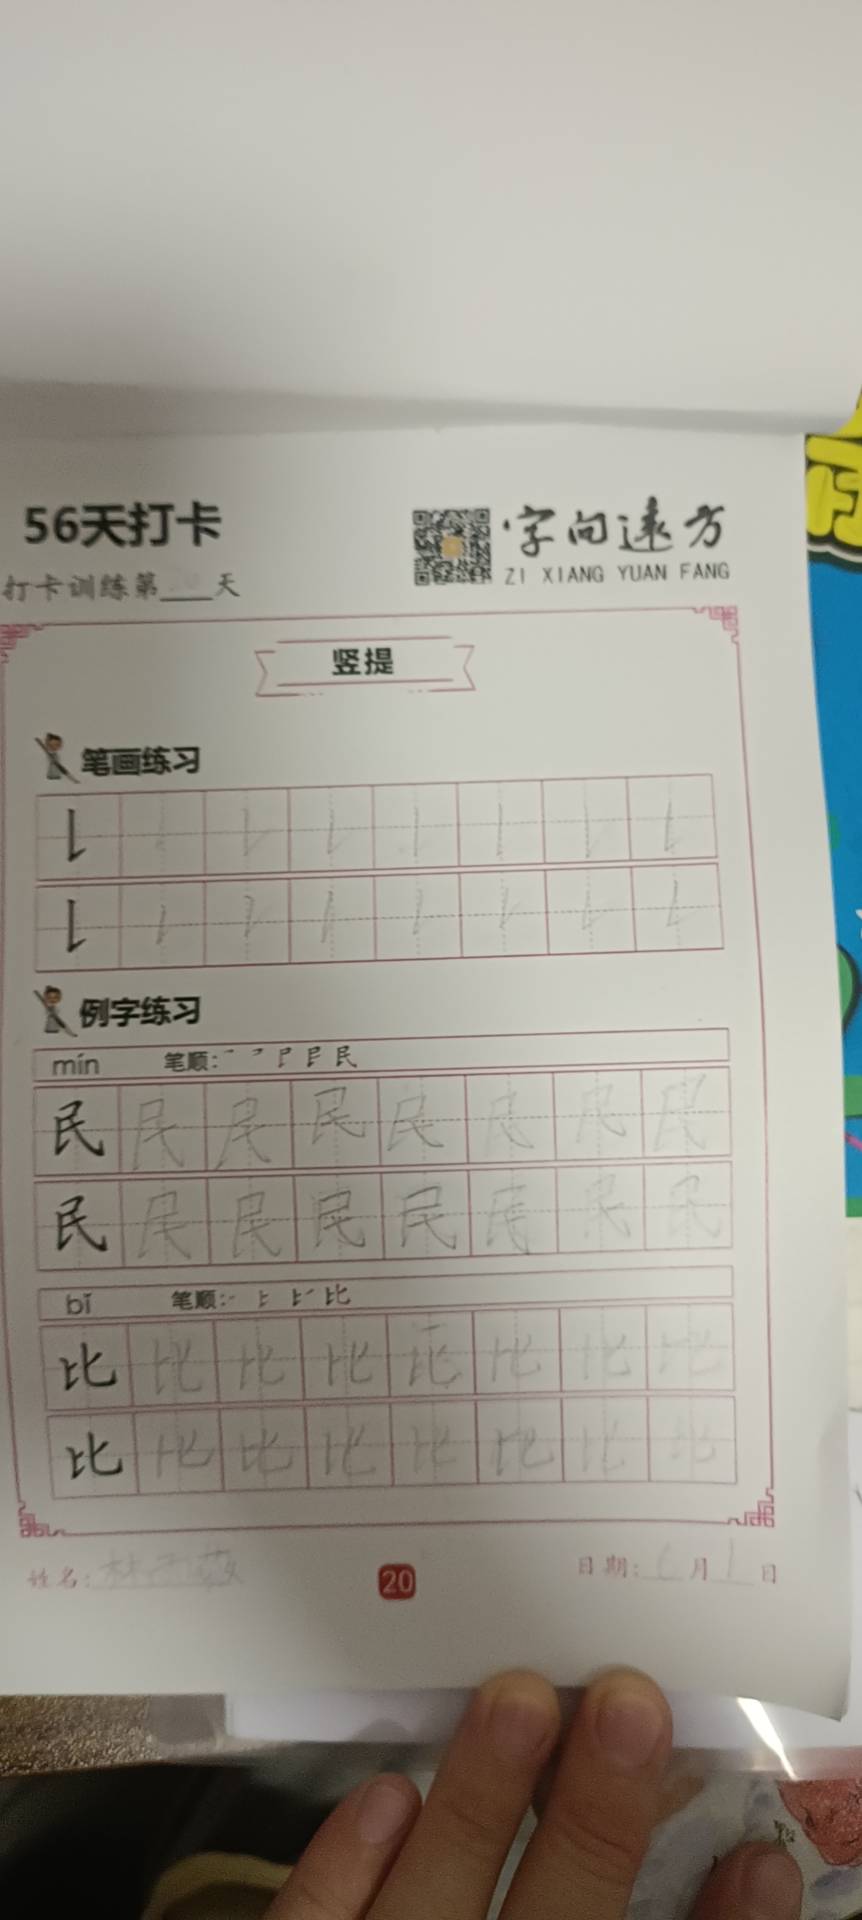 56天打卡
字向远方
ZI XIANG YUAN FANG
打卡训练第___天
竖提
笔画练习
例字练习
mín 笔顺:
民 民 民 民 民 民 民 民
民 民 民 民 民 民 民 民
bǐ 笔顺:
比 比 比 比 比 比 比 比
比 比 比 比 比 比 比 比
姓名: 林
20
日期: 6月1日